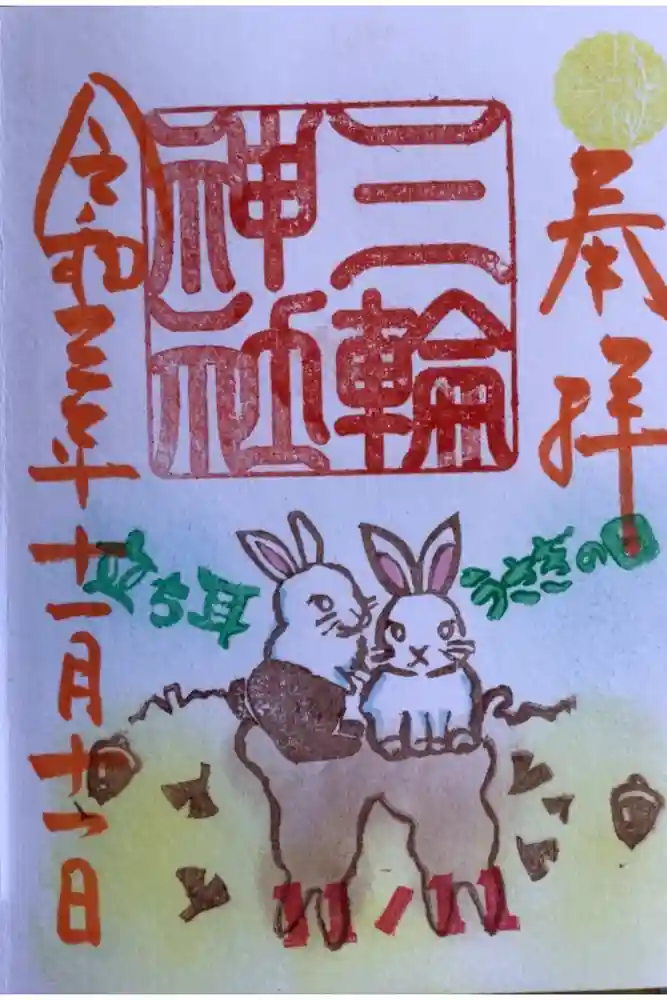 奉拝
三輪
神社
うさぎの日
立ち耳
令和三年十一月十一日
11/11